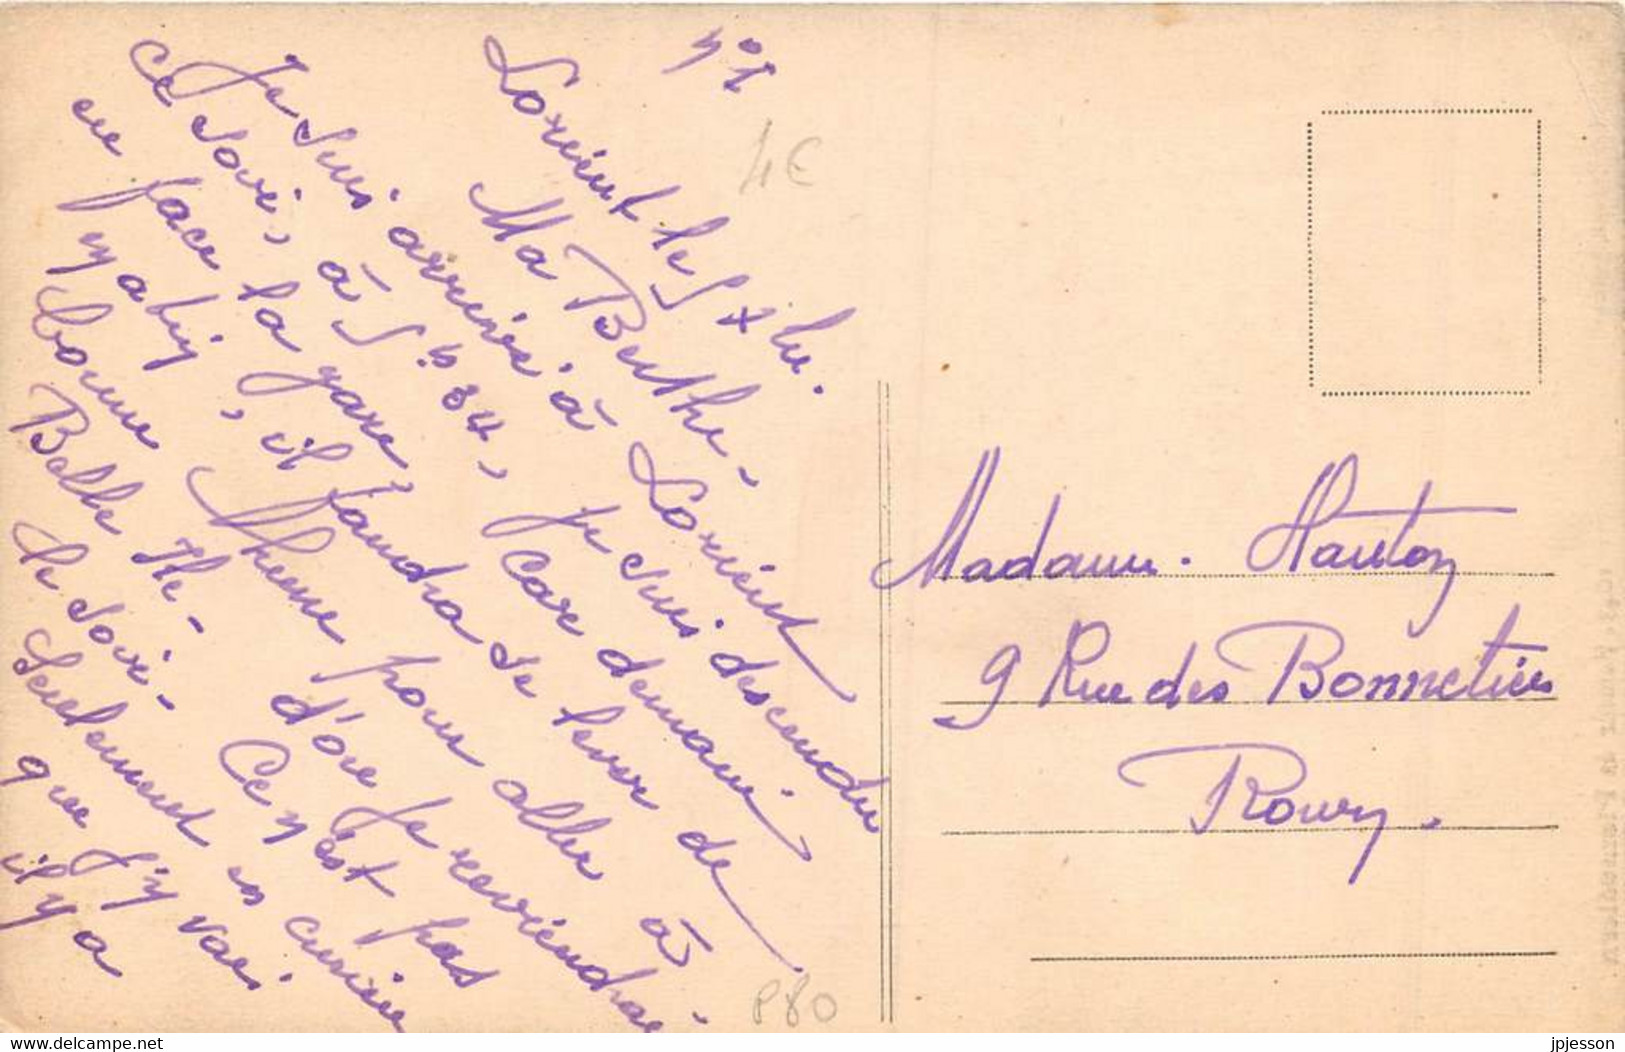 n°1
Lorient le 5 7 bre.
Ma Berthe,
Je suis arrivé à Lorient
ce soir, à 5h34, je suis descendu
en face la gare, car demain
y a bij, il faudra se lever de
bonne heure pour aller à
Belle Ile - d'ore je reviendrai
le soir - Ce n'est pas
seulement en curieu
que j'y vai
il y a
4€
P80
Madame Hauton
9 Rue des Bonnetiers
Rouen.
delcampe.net
jpjesson